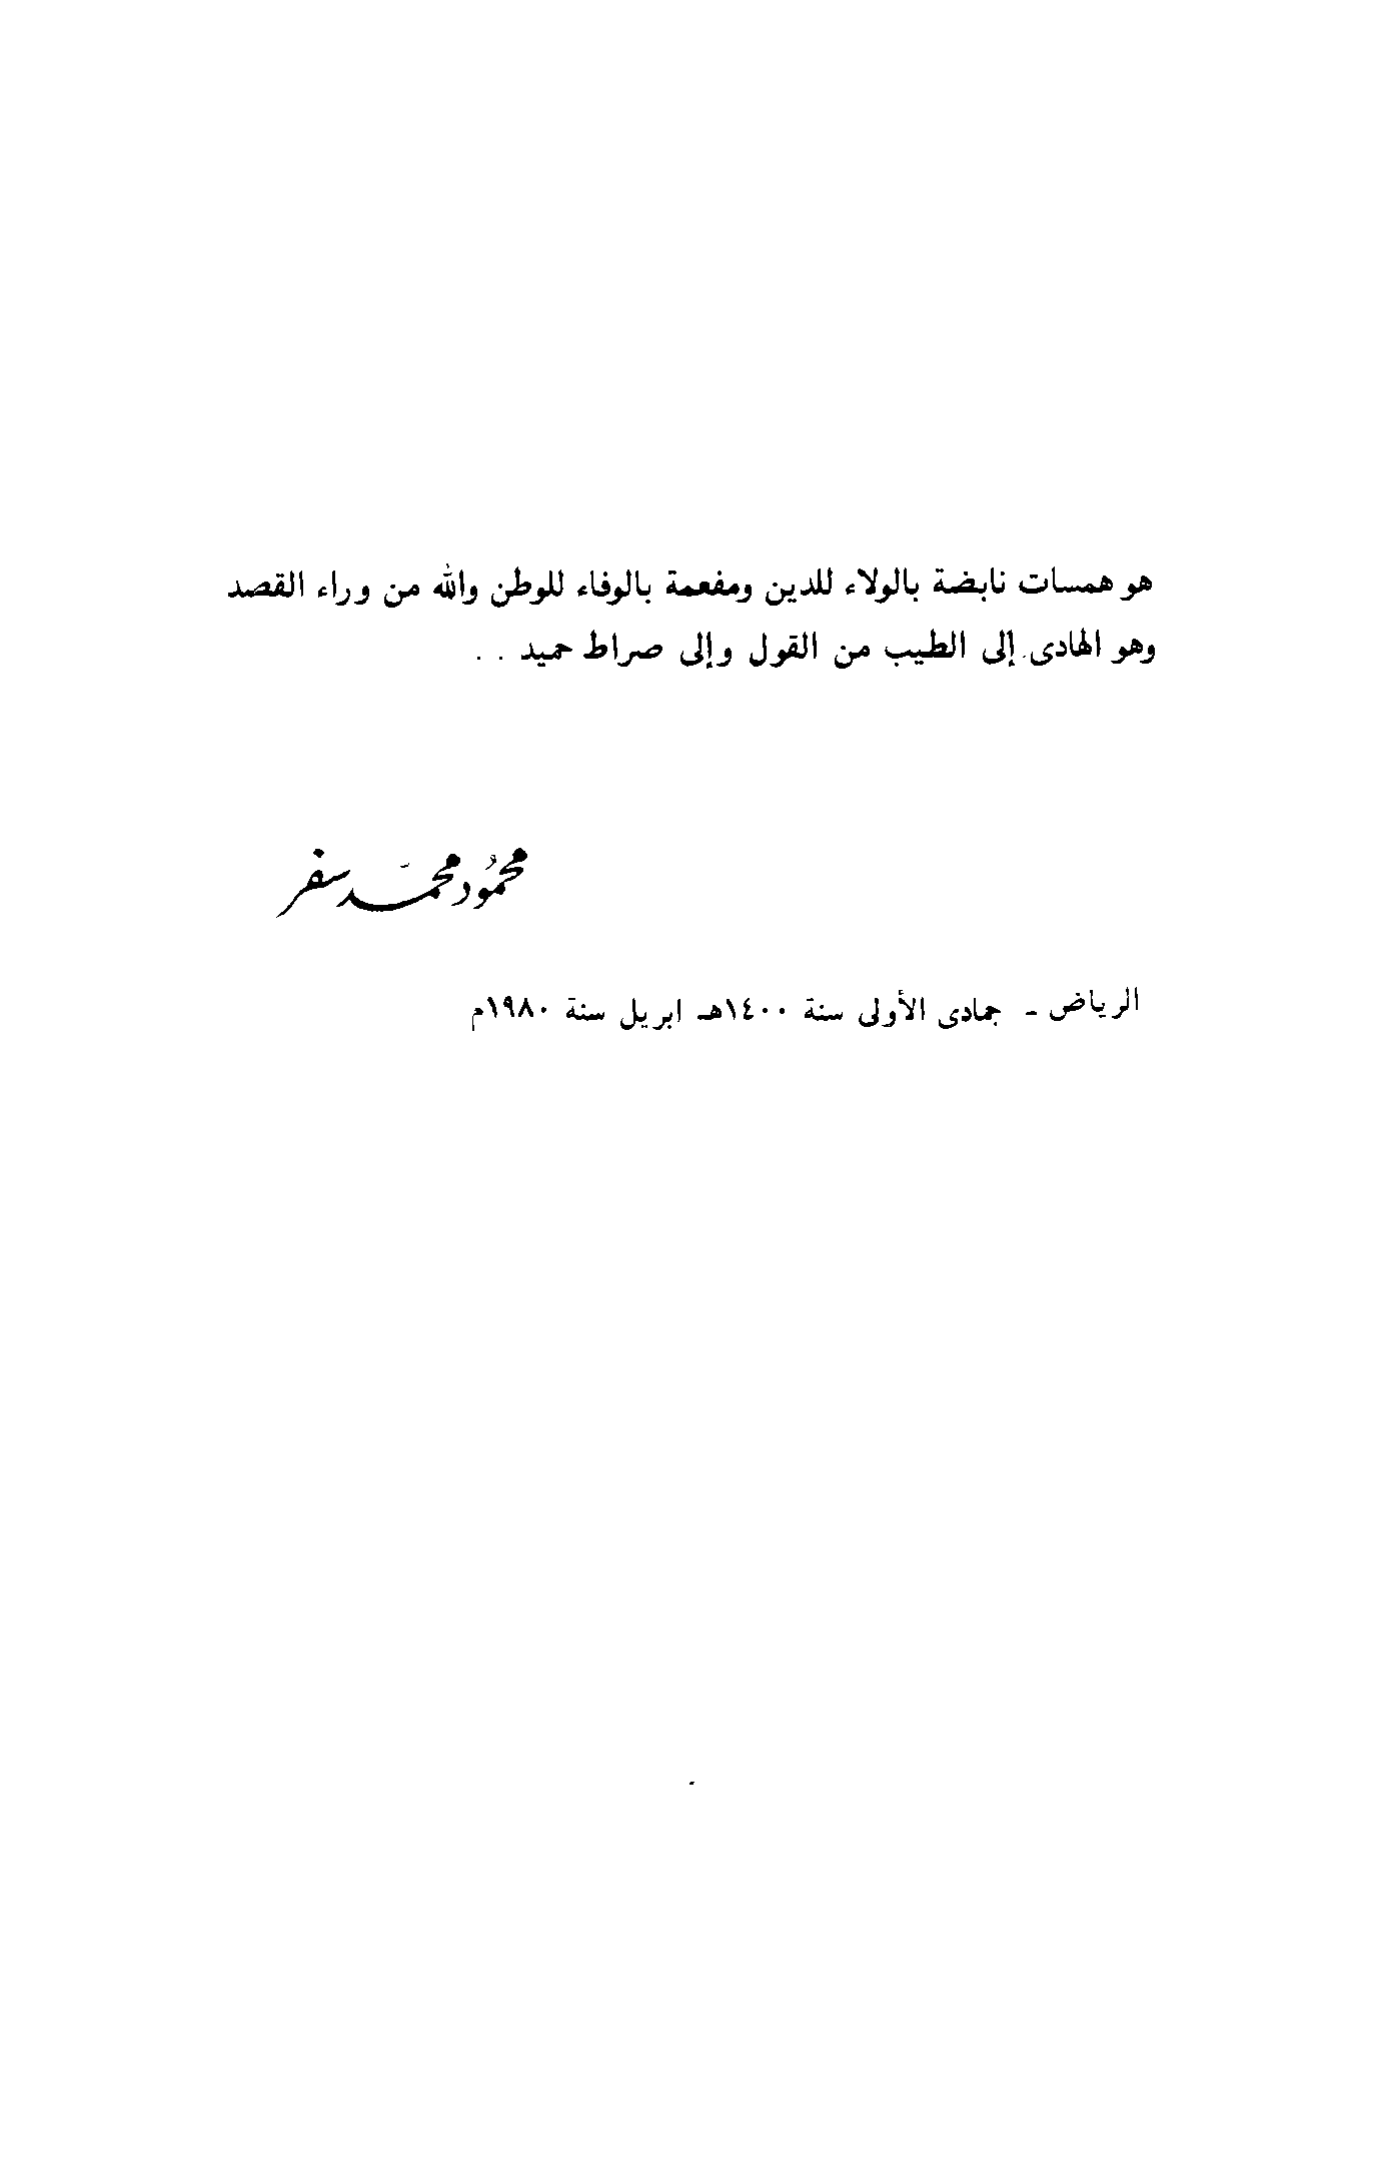 هو همسات نابضة بالولاء للدين ومفعمة بالوفاء للوطن والله من وراء القصد
وهو الهادى إلى الطيب من القول وإلى صراط حميد . .
محمُود محمّد سفر
الرياض - جمادى الأولى سنة ١٤٠٠هـ ابريل سنة ١٩٨٠م